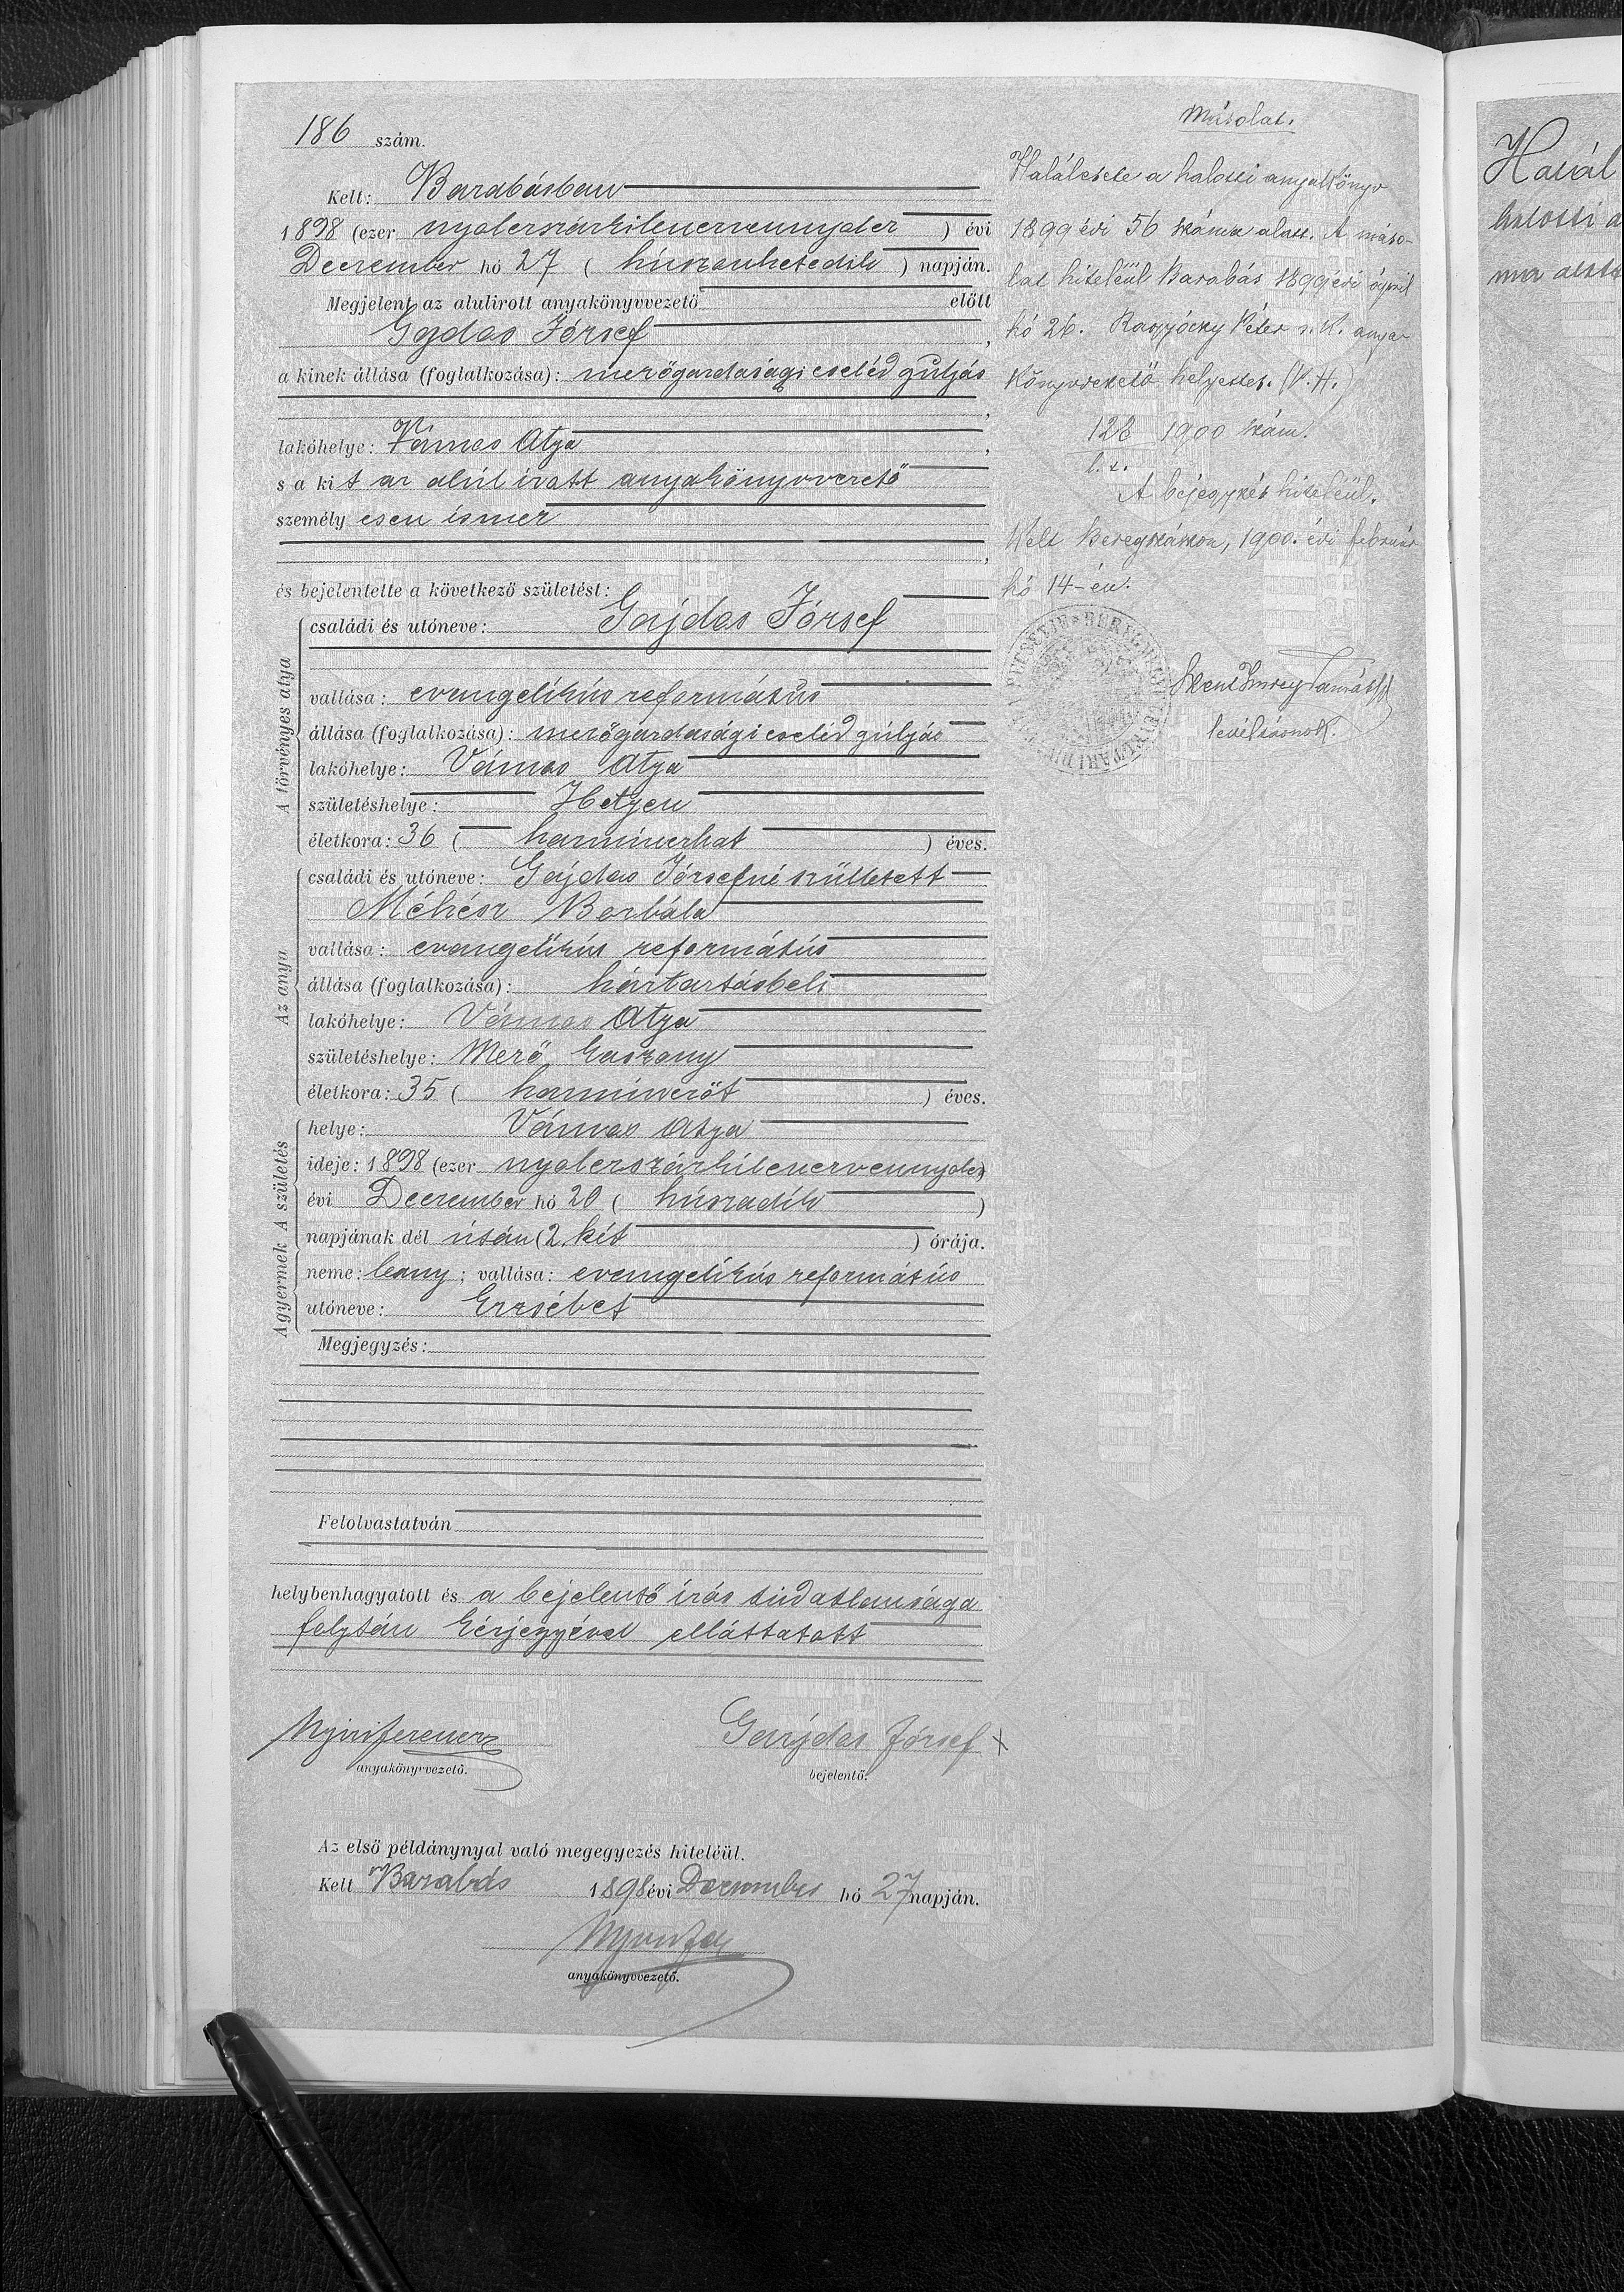 186 szám.
Kelt: Barabásban
1898 (ezer nyolczszázkilenczvennyolcz ) évi
Deczember hó 27 ( huszonhetedik ) napján.
Megjelent az alulirott anyakönyvvezető előtt
Gajdos József ,
a kinek állása (foglalkozása): mezőgazdasági cseléd gulyás
,
lakóhelye: Vámos Atya ,
s a kit az alúl iratt anyakönyvvezető
személy esen ismer
,
és bejelentette a következő születést:
A törvényes atya
családi és utóneve: Gajdos József
vallása: evangelikús reformátús
állása (foglalkozása): mezőgazdasági cseléd gúlyás
lakóhelye: Vámos Atya
születéshelye: Hetyen
életkora: 36 ( harminczhat ) éves.
Az anya
családi és utóneve: Gajdos Józsefné szülletett
Méhész Borbála
vallása: evangelikús reformátús
állása (foglalkozása): háztartásbeli
lakóhelye: Vámos Atya
születéshelye: Mező Kaszony
életkora: 35 ( harminczöt ) éves.
A gyermek A születés
helye: Vámos Atya
ideje: 1898 (ezer nyolczszázkilenczvennyolcz)
évi Deczember hó 20 ( húszadik )
napjának dél útán (2 két ) órája.
neme: leany; vallása: evangelikús reformátús
utóneve: Erzsébet
Megjegyzés:
Felolvastatván
helybenhagyatott és a bejelentő írás túdatlansága
folytán kézjegyével elláttatott
Nyiri Ferencz
anyakönyvvezető.
Gajdos József x
bejelentő.
Az első példánynyal való megegyezés hiteléül.
Kelt Barabás 1898 évi Deczember hó 27 napján.
Nyiri Fer
anyakönyvvezető.
Másolat.
Halálesete a halotti anyakönyv
1899 évi 56 száma alatt. A máso-
lat hiteléül Barabás 1899 évi ápril
hó 26. Péter s. k. anya-
könyvvezető helyettes. (P. H.)
128 1900 szám.
A bejegyzés hiteléül.
Kelt Beregszászon, 1900. évi február
hó 14-én.
Szent Imrey Tamás
levéltárnok.
Halál
halotti a
ma alatt